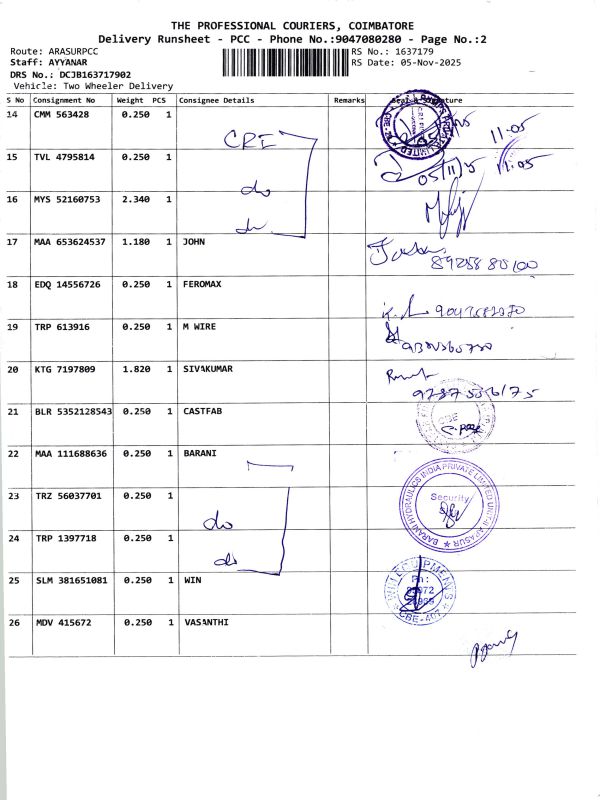 THE PROFESSIONAL COURIERS, COIMBATORE
Delivery Runsheet - PCC - Phone No.:9047080280 - Page No.:2
Route: ARASURPCC
RS No.: 1637179
Staff: AYYANAR
RS Date: 05-Nov-2025
DRS No.: DCJB163717902
Vehicle: Two Wheeler Delivery
S No Consignment No Weight PCS Consignee Details Remarks Seal & Signature
14 CMM 563428 0.250 1 CRI 11.05
15 TVL 4795814 0.250 1 do 05/11/25 11.05
16 MYS 52160753 2.340 1 do
17 MAA 653624537 1.180 1 JOHN
18 EDQ 14556726 0.250 1 FEROMAX
19 TRP 613916 0.250 1 M WIRE
20 KTG 7197809 1.820 1 SIVAKUMAR
21 BLR 5352128543 0.250 1 CASTFAB CBE
22 MAA 111688636 0.250 1 BARANI
BARANI HYDRAULICS INDIA PRIVATE LIMITED UNIT-I ARASUR
Security
23 TRZ 56037701 0.250 1 do
24 TRP 1397718 0.250 1 do
25 SLM 381651081 0.250 1 WIN
Ph:
CBE-407
26 MDV 415672 0.250 1 VASANTHI